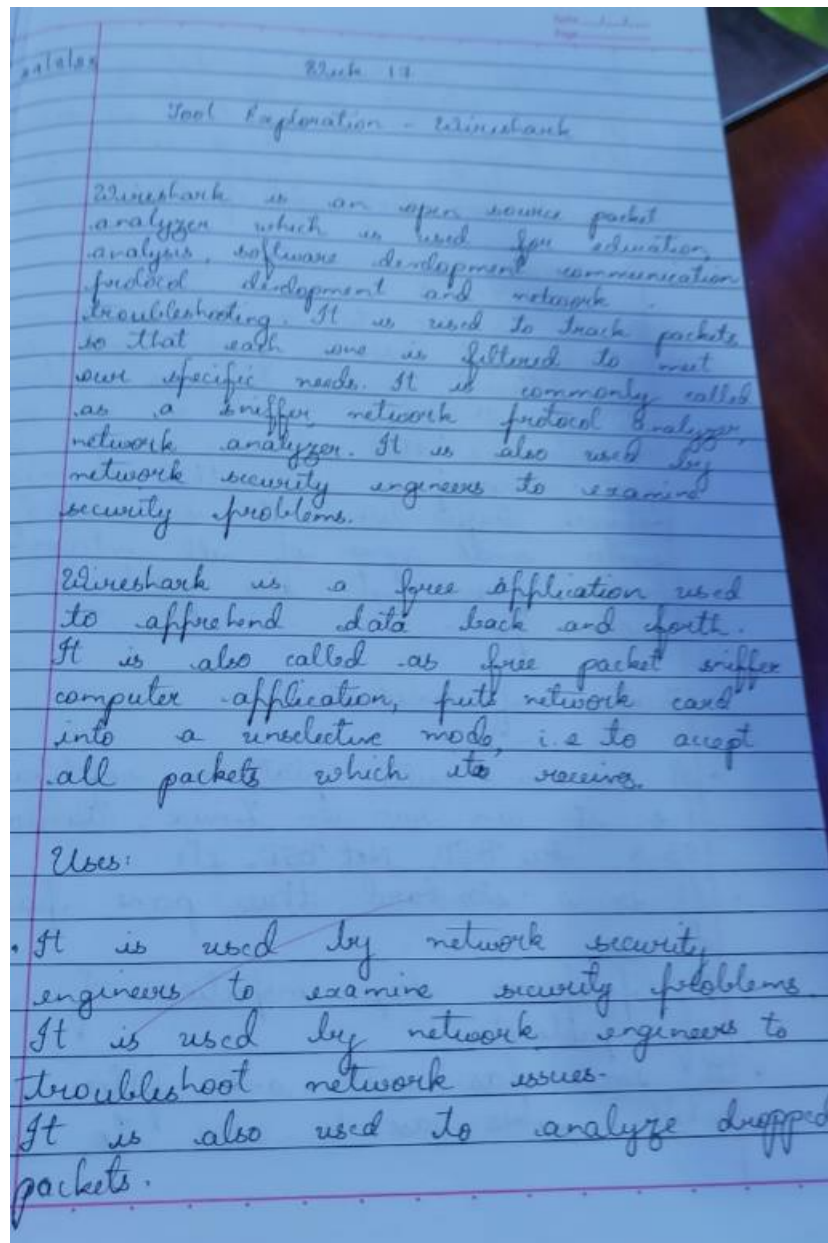 Week 17
Tool Exploration - Wireshark
Wireshark is an open source packet
analyzer which is used for education,
analysis, software development communication
protocol development and network
troubleshooting. It is used to track packets
so that each one is filtered to meet
our specific needs. It is commonly called
as a sniffer, network protocol analyzer,
network analyzer. It is also used by
network security engineers to examine
security problems.
Wireshark is a free application used
to apprehend data back and forth.
It is also called as free packet sniffer
computer application, puts network card
into a unselective mode, i.e to accept
all packets which it receives.
Uses:
. It is used by network security
engineers to examine security problems.
It is used by network engineers to
troubleshoot network issues.
It is also used to analyze dropped
packets.